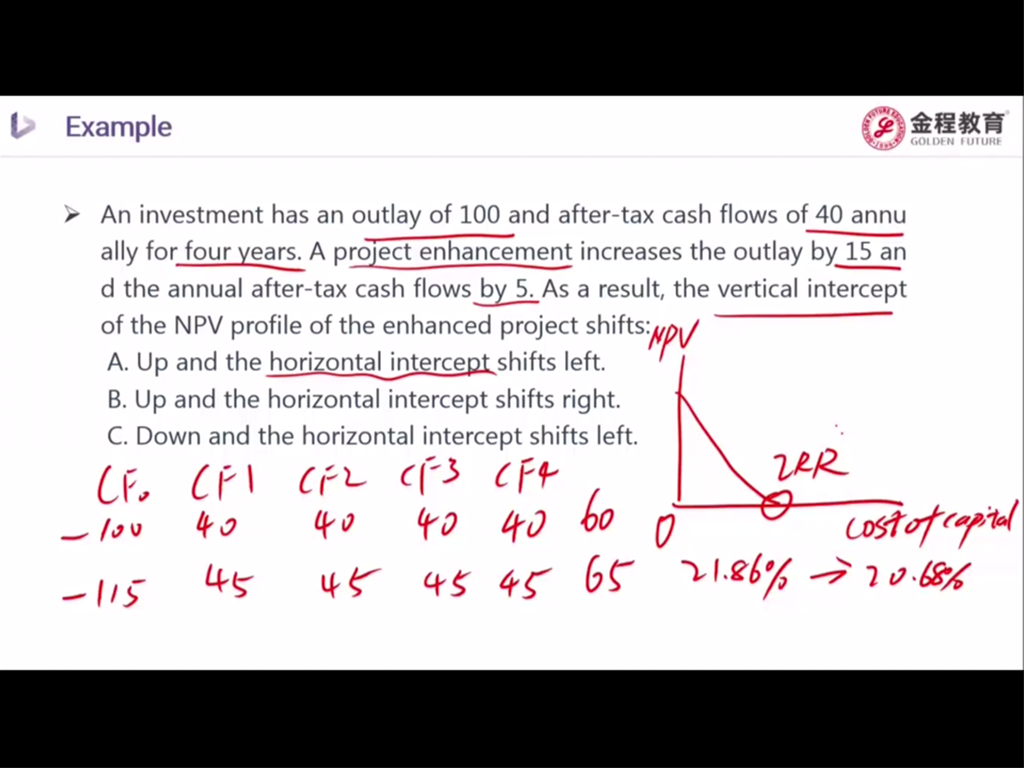 Example
金程教育
GOLDEN FUTURE
An investment has an outlay of 100 and after-tax cash flows of 40 annu
ally for four years. A project enhancement increases the outlay by 15 an
d the annual after-tax cash flows by 5. As a result, the vertical intercept
of the NPV profile of the enhanced project shifts:
A. Up and the horizontal intercept shifts left.
B. Up and the horizontal intercept shifts right.
C. Down and the horizontal intercept shifts left.
NPV
IRR
0
cost of capital
CF0 CF1 CF2 CF3 CF4
-100 40 40 40 40 60
-115 45 45 45 45 65
21.86% → 20.68%